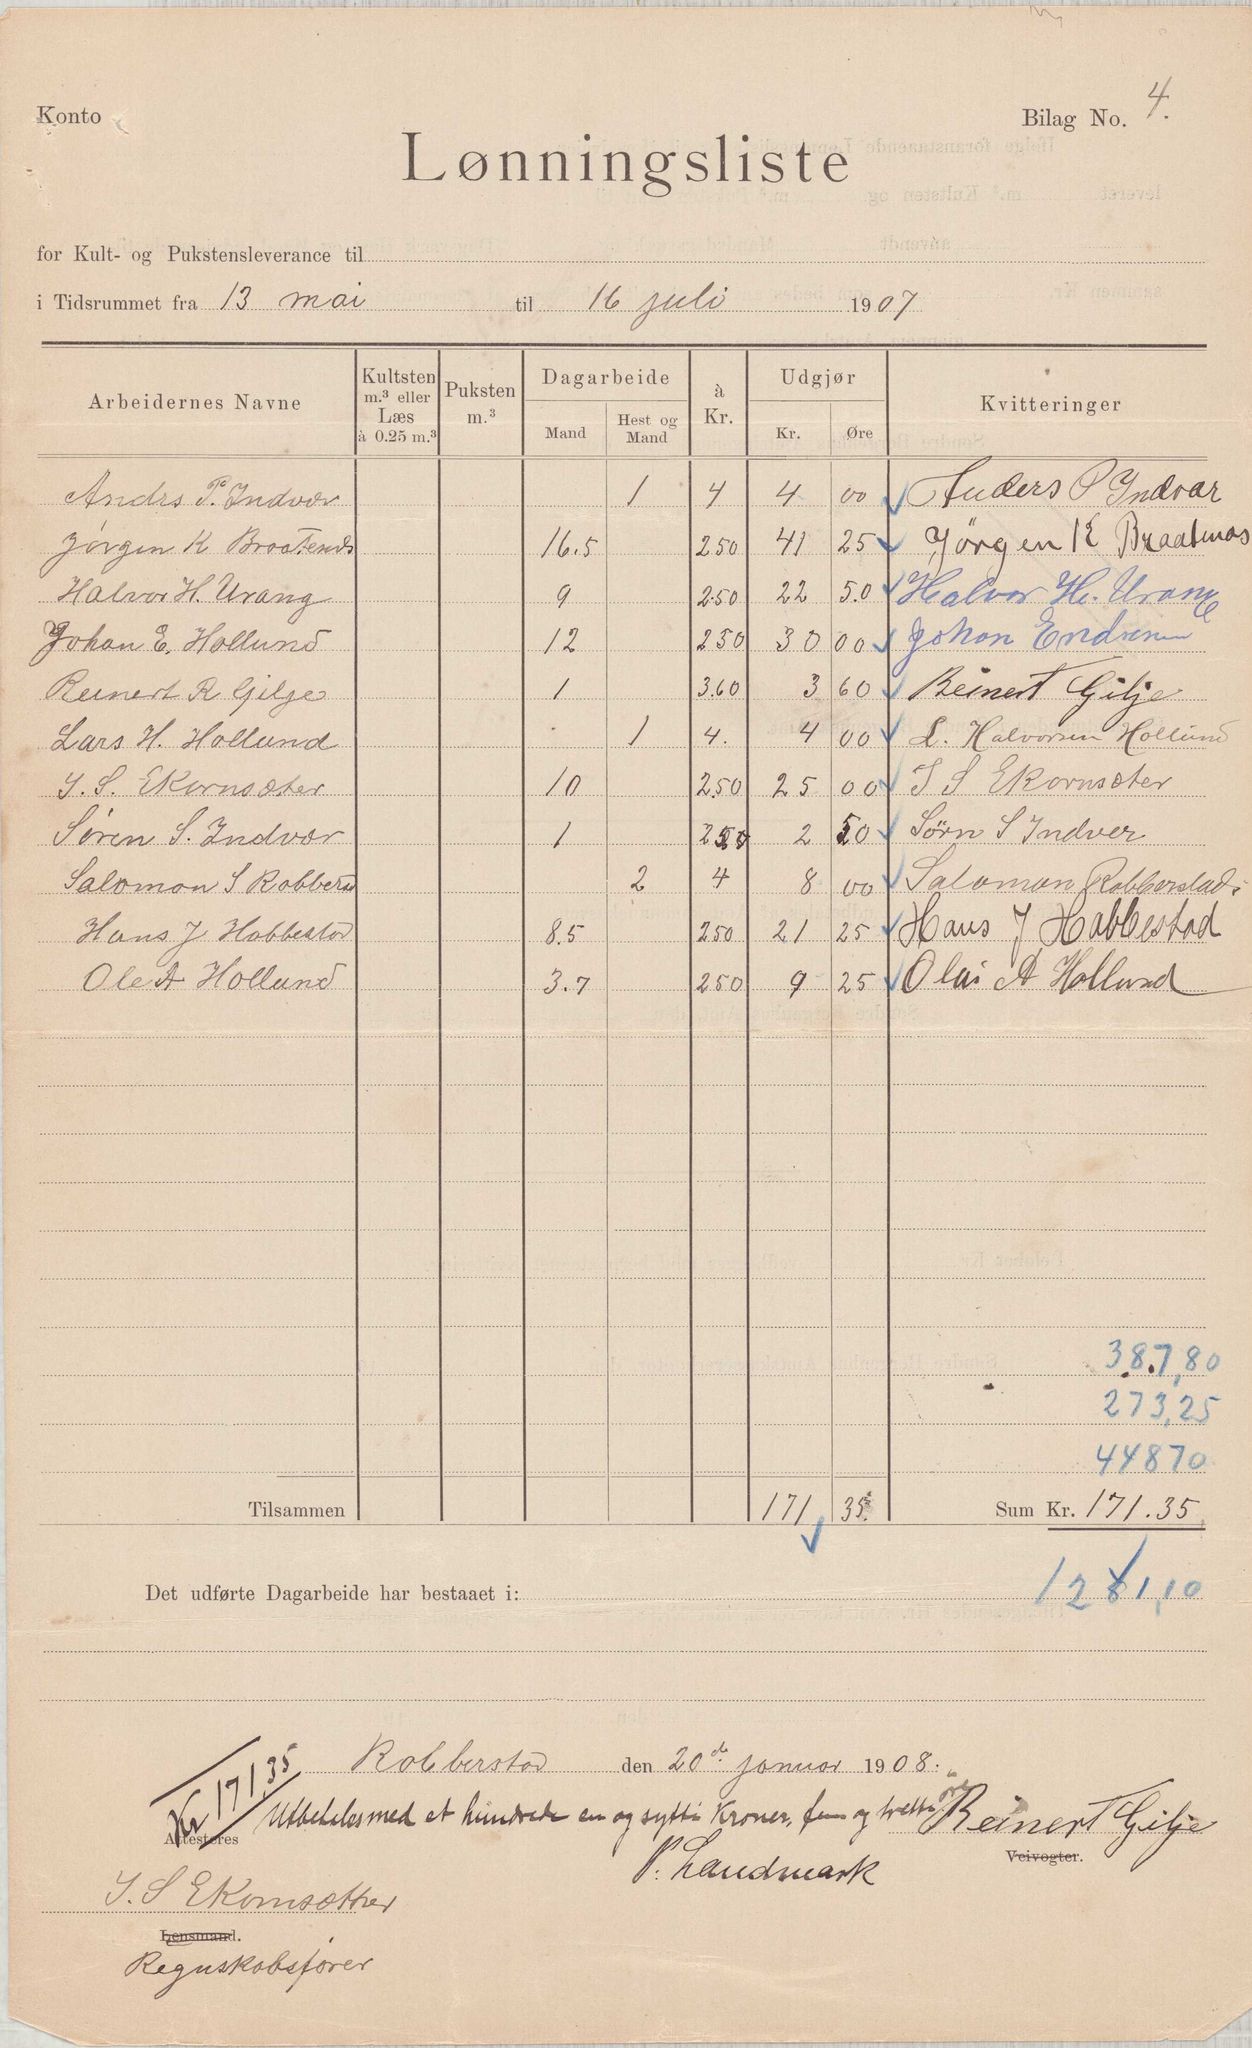 Konto
Bilag No. 4.
Lønningsliste
for Kult- og Pukstensleverance til
i Tidsrummet fra 13 mai til 16 juli 1907
Arbeidernes Navne | Kultsten m.³ eller Læs à 0.25 m.³ | Puksten m.³ | Dagarbeide Mand | Hest og Mand | à Kr. | Udgjør Kr. | Øre | Kvitteringer
Andrs P. Indvær 1 4 4 00 Anders P Indvær
Jørgen K Braatenes 16.5 250 41 25 Jörgen K Braatnæs
Halvor H. Urang 9 250 22 50 Halvor H. Urang
Johan E. Hollund 12 250 30 00 Johan Endresen
Reinert R Gilje 1 3.60 3 60 Reinert Gilje
Lars H. Hollund 1 4. 4 00 L. Halvorsen Hollund
I. S. Ekornsæter 10 250 25 00 I S Ekornsæter
Søren S. Indvær 1 250 2 50 Sørn S Indver
Salomon S Robberst 2 4 8 00 Salomon Robberstad
Hans J Habbestad 8.5 250 21 25 Hans J Habbestad
Ole A Hollund 3.7 250 9 25 Olai A Hollund
387,80
273,25
44870
Tilsammen 171 35. Sum Kr. 171.35
1281,10
Det udførte Dagarbeide har bestaaet i:
Robberstad den 20de januar 1908.
Kr 171,35
Utbetales med et hundrede en og sytti Kroner, fem og tretti øre
Reinert Gilje
Attesteres
P. Landmark
Veivogter.
I. S Ekornsæther
Lensmand.
Regnskabsfører